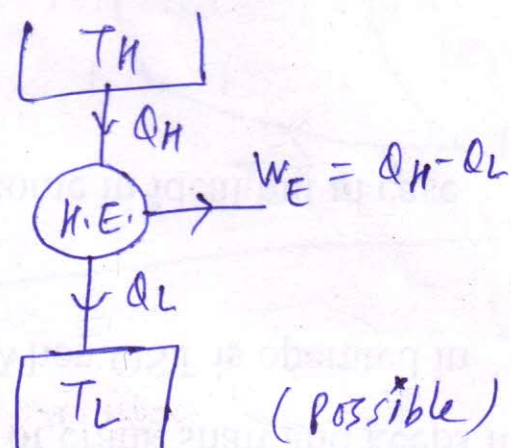 TH
QH
H.E.
WE = QH-QL
QL
TL
(possible)